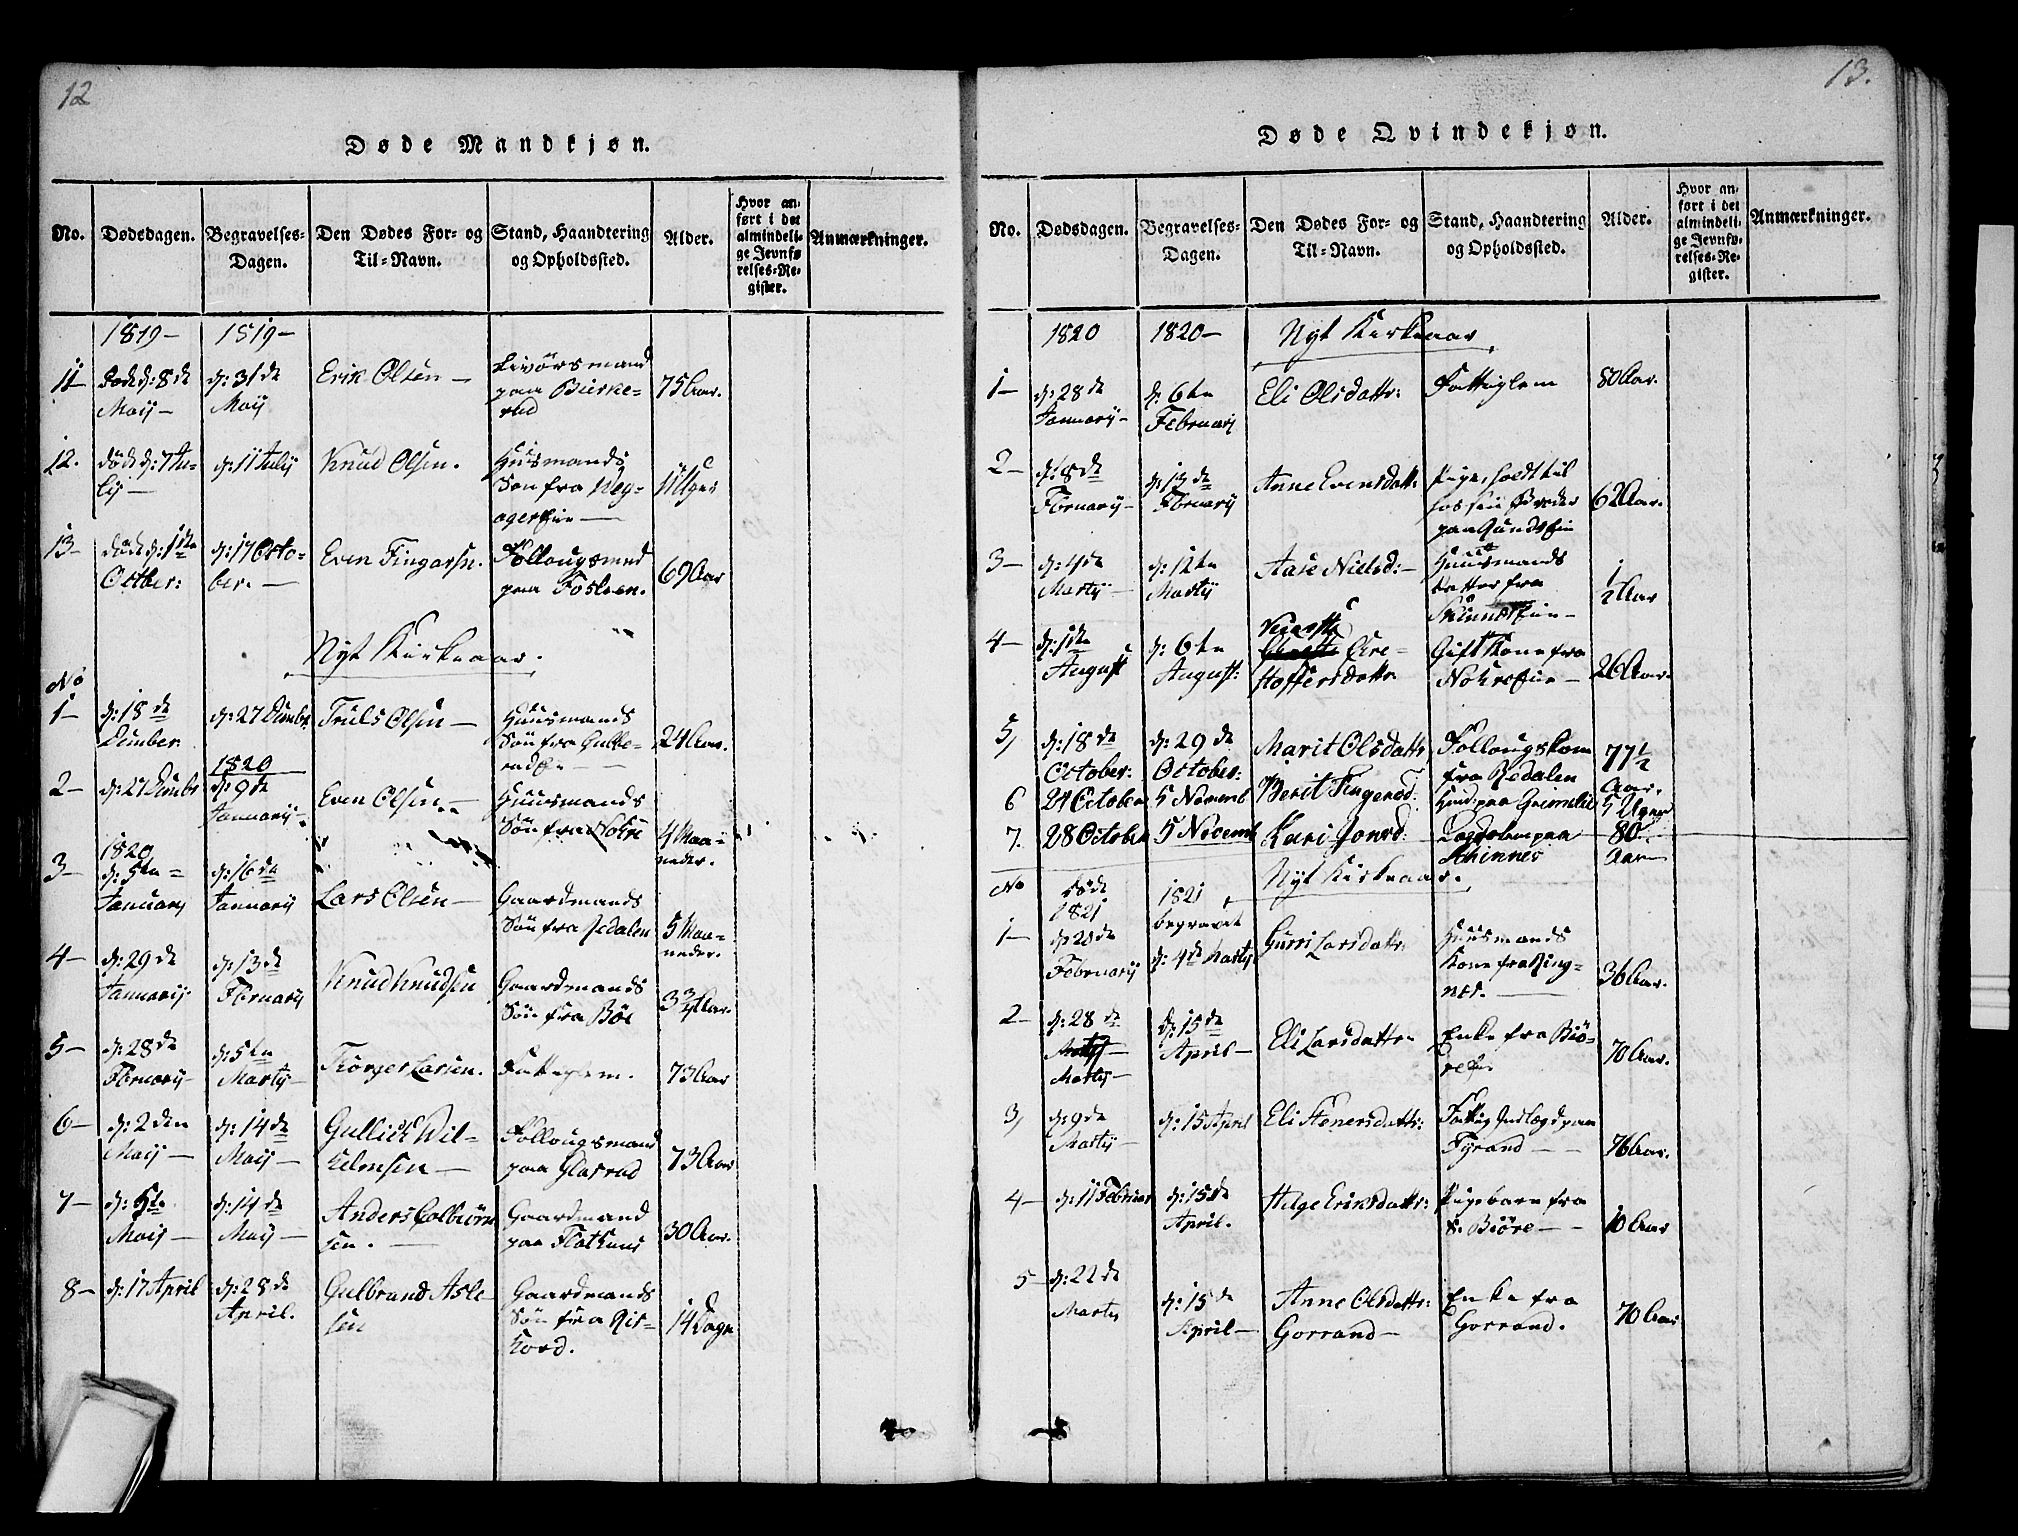 12
Døde Mandkjøn.
No.
Dødsdagen.
Begravelses-
Dagen.
Den Dødes For- og
Til-Navn.
Stand, Haandtering
og Opholdssted.
Alder.
Hvor an-
ført i det
almindeli-
ge Jevnfø-
relses-Re-
gister.
Anmærkninger.
1819-
1819-
11-
døde d: 8de
Maij-
d: 31de
Maij
Erik Olsen-
paa Birke-
rud
75 Aar.
12.
døde d: 7 Ju-
lij-
d: 11 Julij
Knud Olsen.
Huusmands
Søn fra
11 Uger
13-
døde d: 1ste
October:
d: 17 Octo-
ber.-
Even Fingarsn.
Follougsmand
paa Fosheen.
69 Aar
Nyt Kirkeaar.
No
1-
d: 18de
Dember
d: 27 Dember
Truls Olsen-
Huusmands
Søn fra Gulbe-
24 Aar.
1820
2-
d: 27 Dember
d: 9de
Januarij-
Even Olsen.-
Huusmands
Søn fra
4 Maa-
neder.
1820
3-
d: 5te-
Januarij
d: 16de
Januarij
Lars Olsen-
Gaardmands
Søn fra Sedalen
5 Maa-
neder.
4-
d: 29de
Januarij
d: 13de
Februarij
Knud Knudsen
Gaardmands
Søn fra Böe
3 3/4 Aar.
5-
d: 28de
Februarij-
d: 5te
Martij-
Torger Larsen.
Fattiglem.
73 Aar
6-
d: 2den
Maij-
d: 14de
Maij-
Gullick Wil-
helmsen-
Follougsmand
paa Glasrud
73 Aar
7-
d: 5te
Maij-
d: 14de
Maij-
Anders Colbiörn-
sen.-
Gaardmand
paa
30 Aar.
8-
d: 17 April
d: 28de
April.
Gulbrand Asle-
sen
Gaardmands
Søn fra
14 Dage
13.
Døde Qvindekjøn.
No.
Dødsdagen.
Begravelses-
Dagen.
Den Dødes For- og
Til-Navn.
Stand, Haandtering
og Opholdssted.
Alder.
Hvor an-
ført i det
almindeli-
ge Jevnfø-
relses-Re-
gister.
Anmærkninger.
1820
1820-
Nyt Kirkeaar
1-
d: 28de
Januarij-
d: 6te
Februarij
Eli Olsdattr:
Fattiglem
80 Aar.
2-
d: 8de
Februarij-
d: 13de
Februarij
Anne Evensdattr
Pige, født til
hos sin Broder
paa
62 Aar.
3-
d: 4de
Martij-
d: 12te
Martij
Aase Nielsd:-
Huusmands
Datter fra
1/2 Aar
4-
d: 1ste
August
d: 6te
August:
Cire-
stoffersdattr
Gift Kone fra
26 Aar.
5,
d: 18de
October:
d: 29de
October:
Marit Olsdattr
Follougskone
fra Sedalen
77 1/2
Aar.
6
24 October
5 Novemb
Berit Fingersd:
paa Grimelie
5 Uger
7.
28 October
5 Novemb
Kari Jonsd:
Lægdslem paa
Schinnes
80.
Aar-
Nyt Kirkeaar.
No
døde
1821
1821
begravet
1-
d: 20de
Februarij
d: 4de Martij.
Gurri Larsdattr:
Huusmands
Kone fra Ring-
nes.-
36 Aar.
2-
d: 28de
Martij-
Martij-
d: 15de
April-
Eli Larsdattr-
Enke fra Biö-
70 Aar.
3,
d: 9de
Martij-
d: 15 April
Eli Stenersdattr:
Fattig Indlægd paa
Tyrand--
76 Aar.
4-
d: 11 Februar
d: 15de
April.
Helge Eriksdattr:
Pigebarn fra
S: Biöre--
10 Aar
5-
d: 22de
Martij
d: 15de
April-
Anne Olsdattr:
Gorrand-
Enke fra
Gorrand.
70 Aar